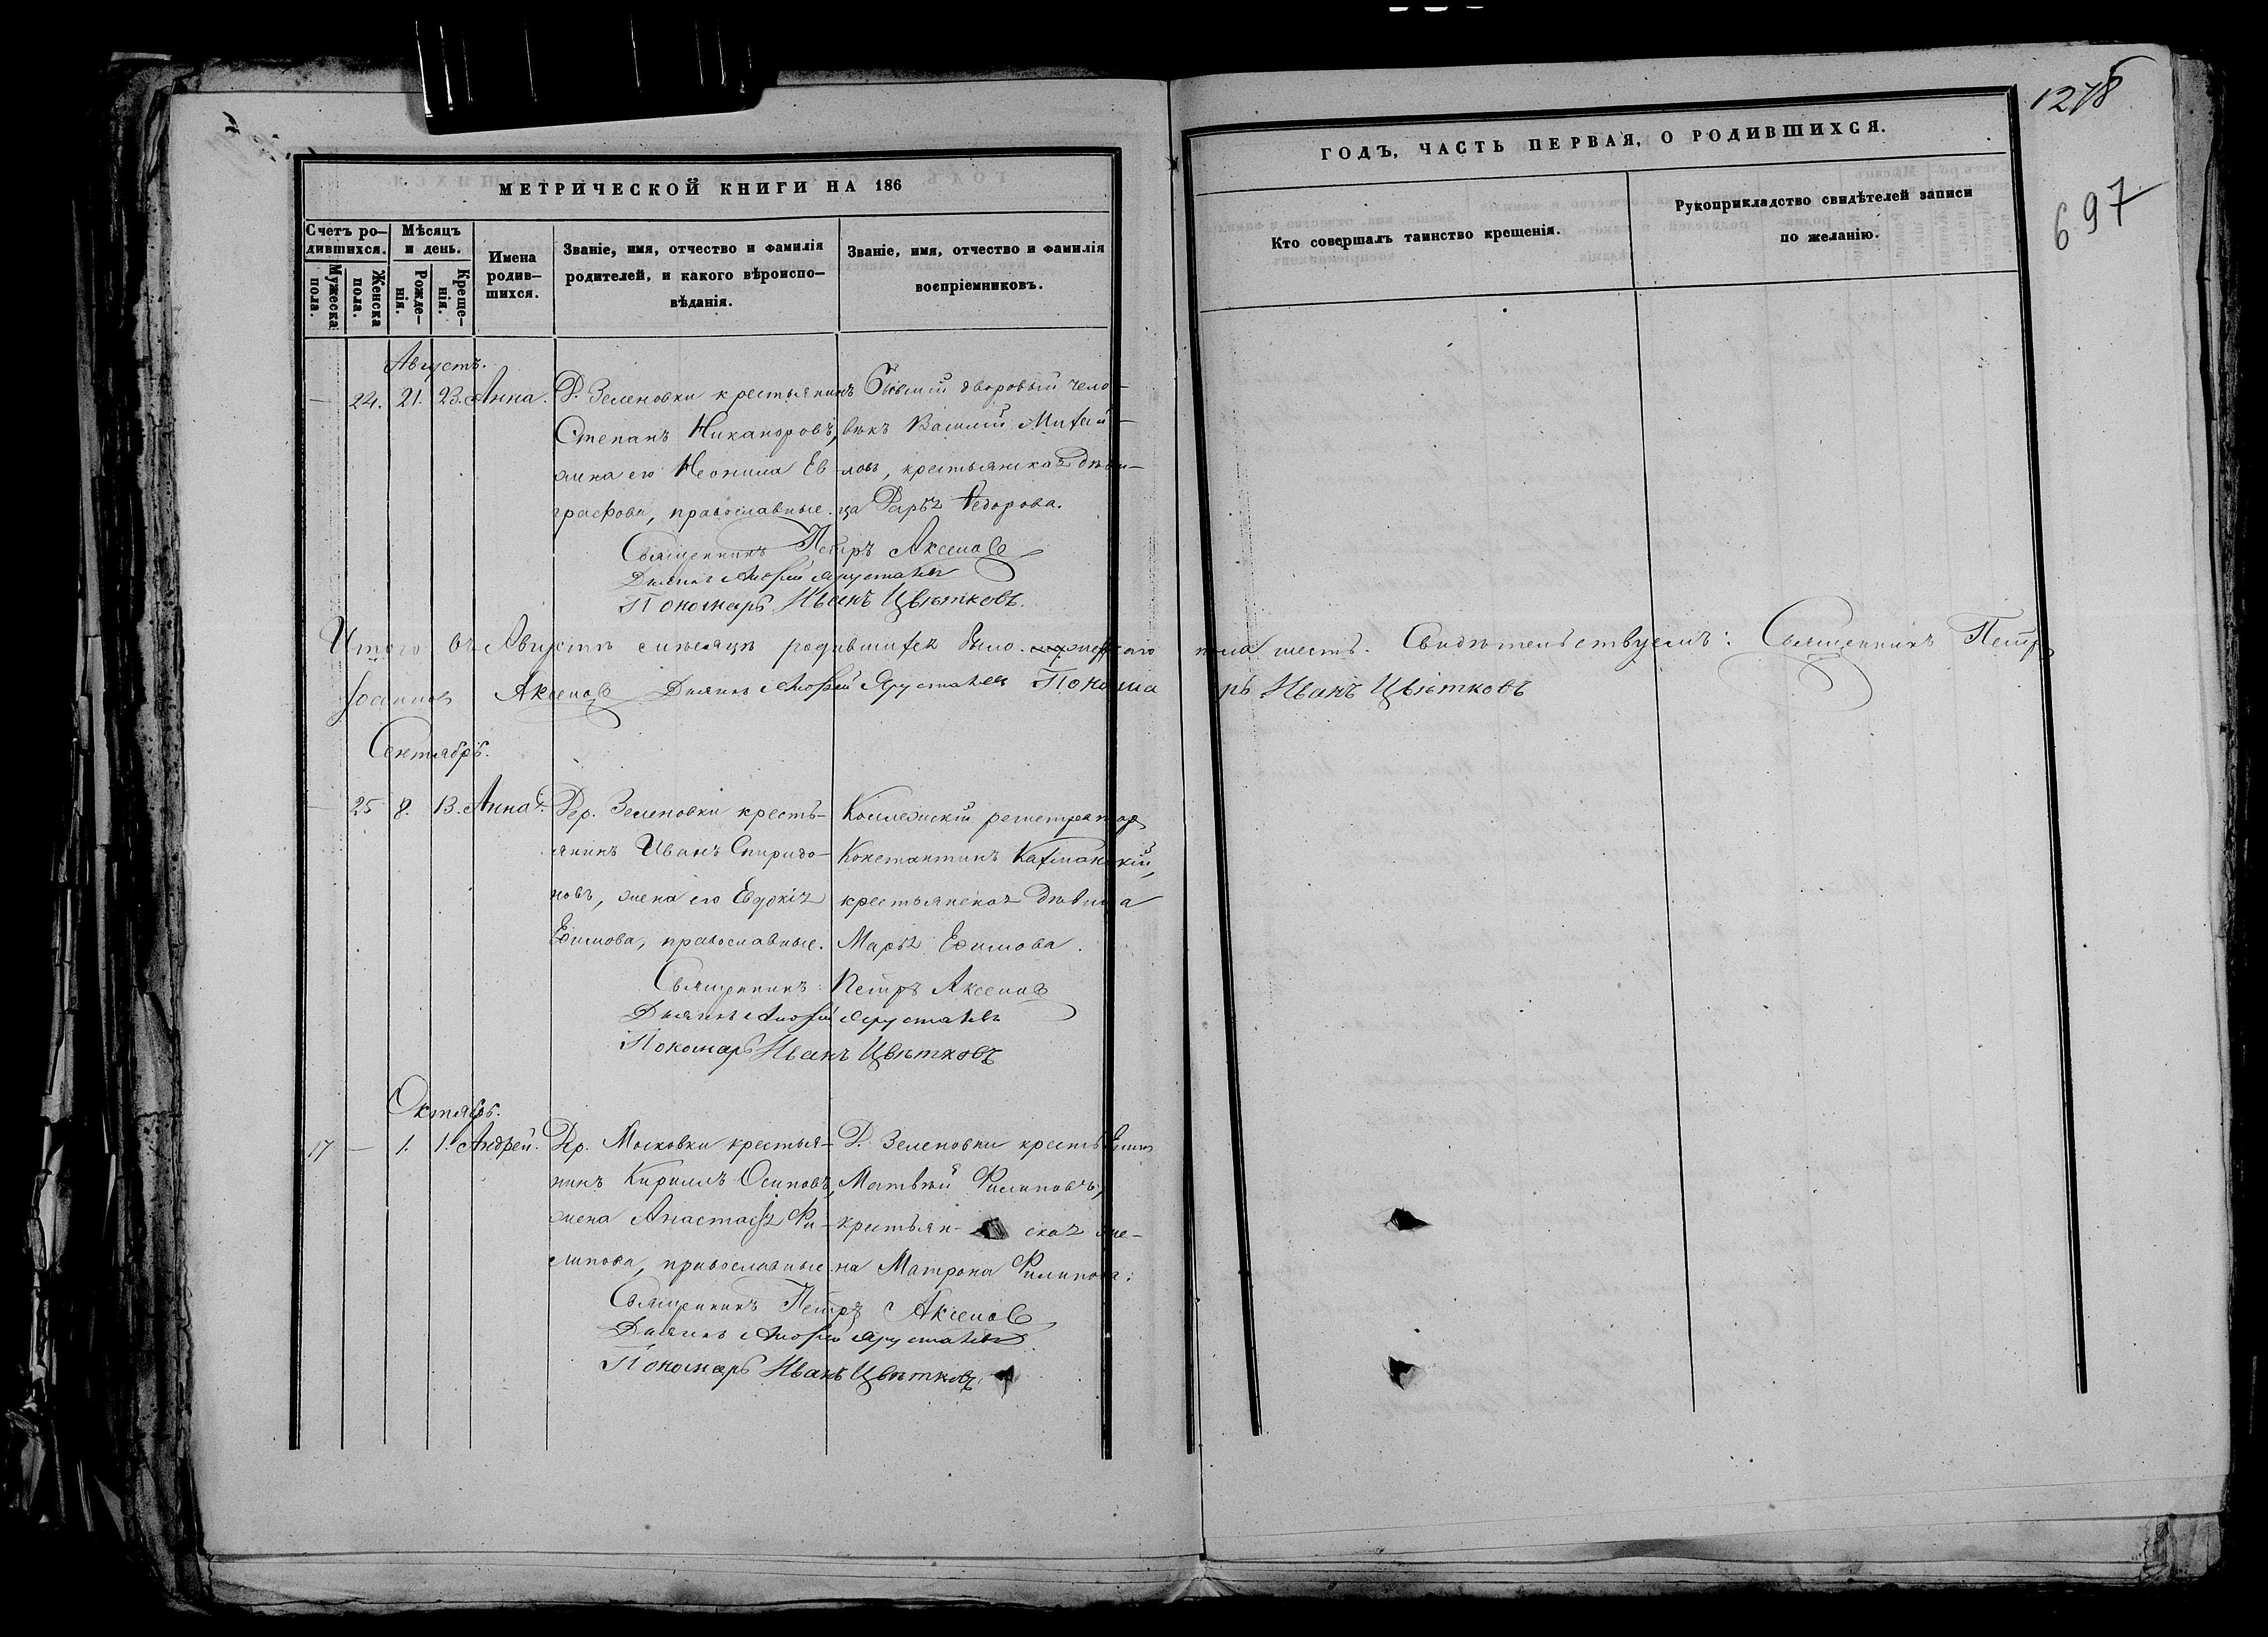 1278
697
МЕТРИЧЕСКОЙ КНИГИ НА 186
ГОДЪ, ЧАСТЬ ПЕРВАЯ, О РОДИВШИХСЯ.
Счетъ ро-
дившихся.
Мужеска
пола.
Женска
пола.
Мѣсяцъ
и день.
Рожде-
нія.
Креще-
нія.
Имена
родив-
шихся.
Званіе, имя, отчество и фамилія
родителей, и какого вѣроиспо-
вѣданія.
Званіе, имя, отчество и фамилія
воспріемниковъ.
Кто совершалъ таинство крещенія.
Рукоприкладство свидѣтелей записи
по желанію.
Августъ.
— 24. 21. 23. Анна.
Д. Зеленовки крестьянинъ
Степанъ Никаноровъ,
жена его Неонила Ев-
графова, православные.
Бывшій дворовый чело-
вѣкъ Василій Михай-
ловъ, крестьянская дѣви-
ца Дарья Ѳедорова.
Священникъ Петръ Аксеновъ
Дьячекъ
Пономарь Иванъ Цвѣтковъ.
Итого въ Августѣ мѣсяцѣ родившихся было женскаго пола шесть. Свидѣтельствуемъ: Священникъ Петръ
Іоанновъ Аксеновъ Дьячекъ Пономарь Иванъ Цвѣтковъ
Сентябрь.
— 25 8. 13. Анна.
Дер. Зеленовки кресть-
янинъ Иванъ Спиридо-
новъ, жена его Евдокія
Ефимова, православные.
Коллежскій регистраторъ
Константинъ
крестьянская дѣвица
Марья Ефимова.
Священникъ Петръ Аксеновъ
Дьячекъ
Пономарь Иванъ Цвѣтковъ
Октябрь.
17 — 1. 1. Андрей.
Др. Московки крестья-
нинъ Кириллъ Осиповъ,
жена Анастасія Фи-
липова, православные
Д. Зеленовки крестьянинъ
Матвѣй Филиповъ,
крестьян- ская же-
на Матрона Филипова.
Священникъ Петръ Аксеновъ
Дьячекъ
Пономарь Иванъ Цвѣтковъ.